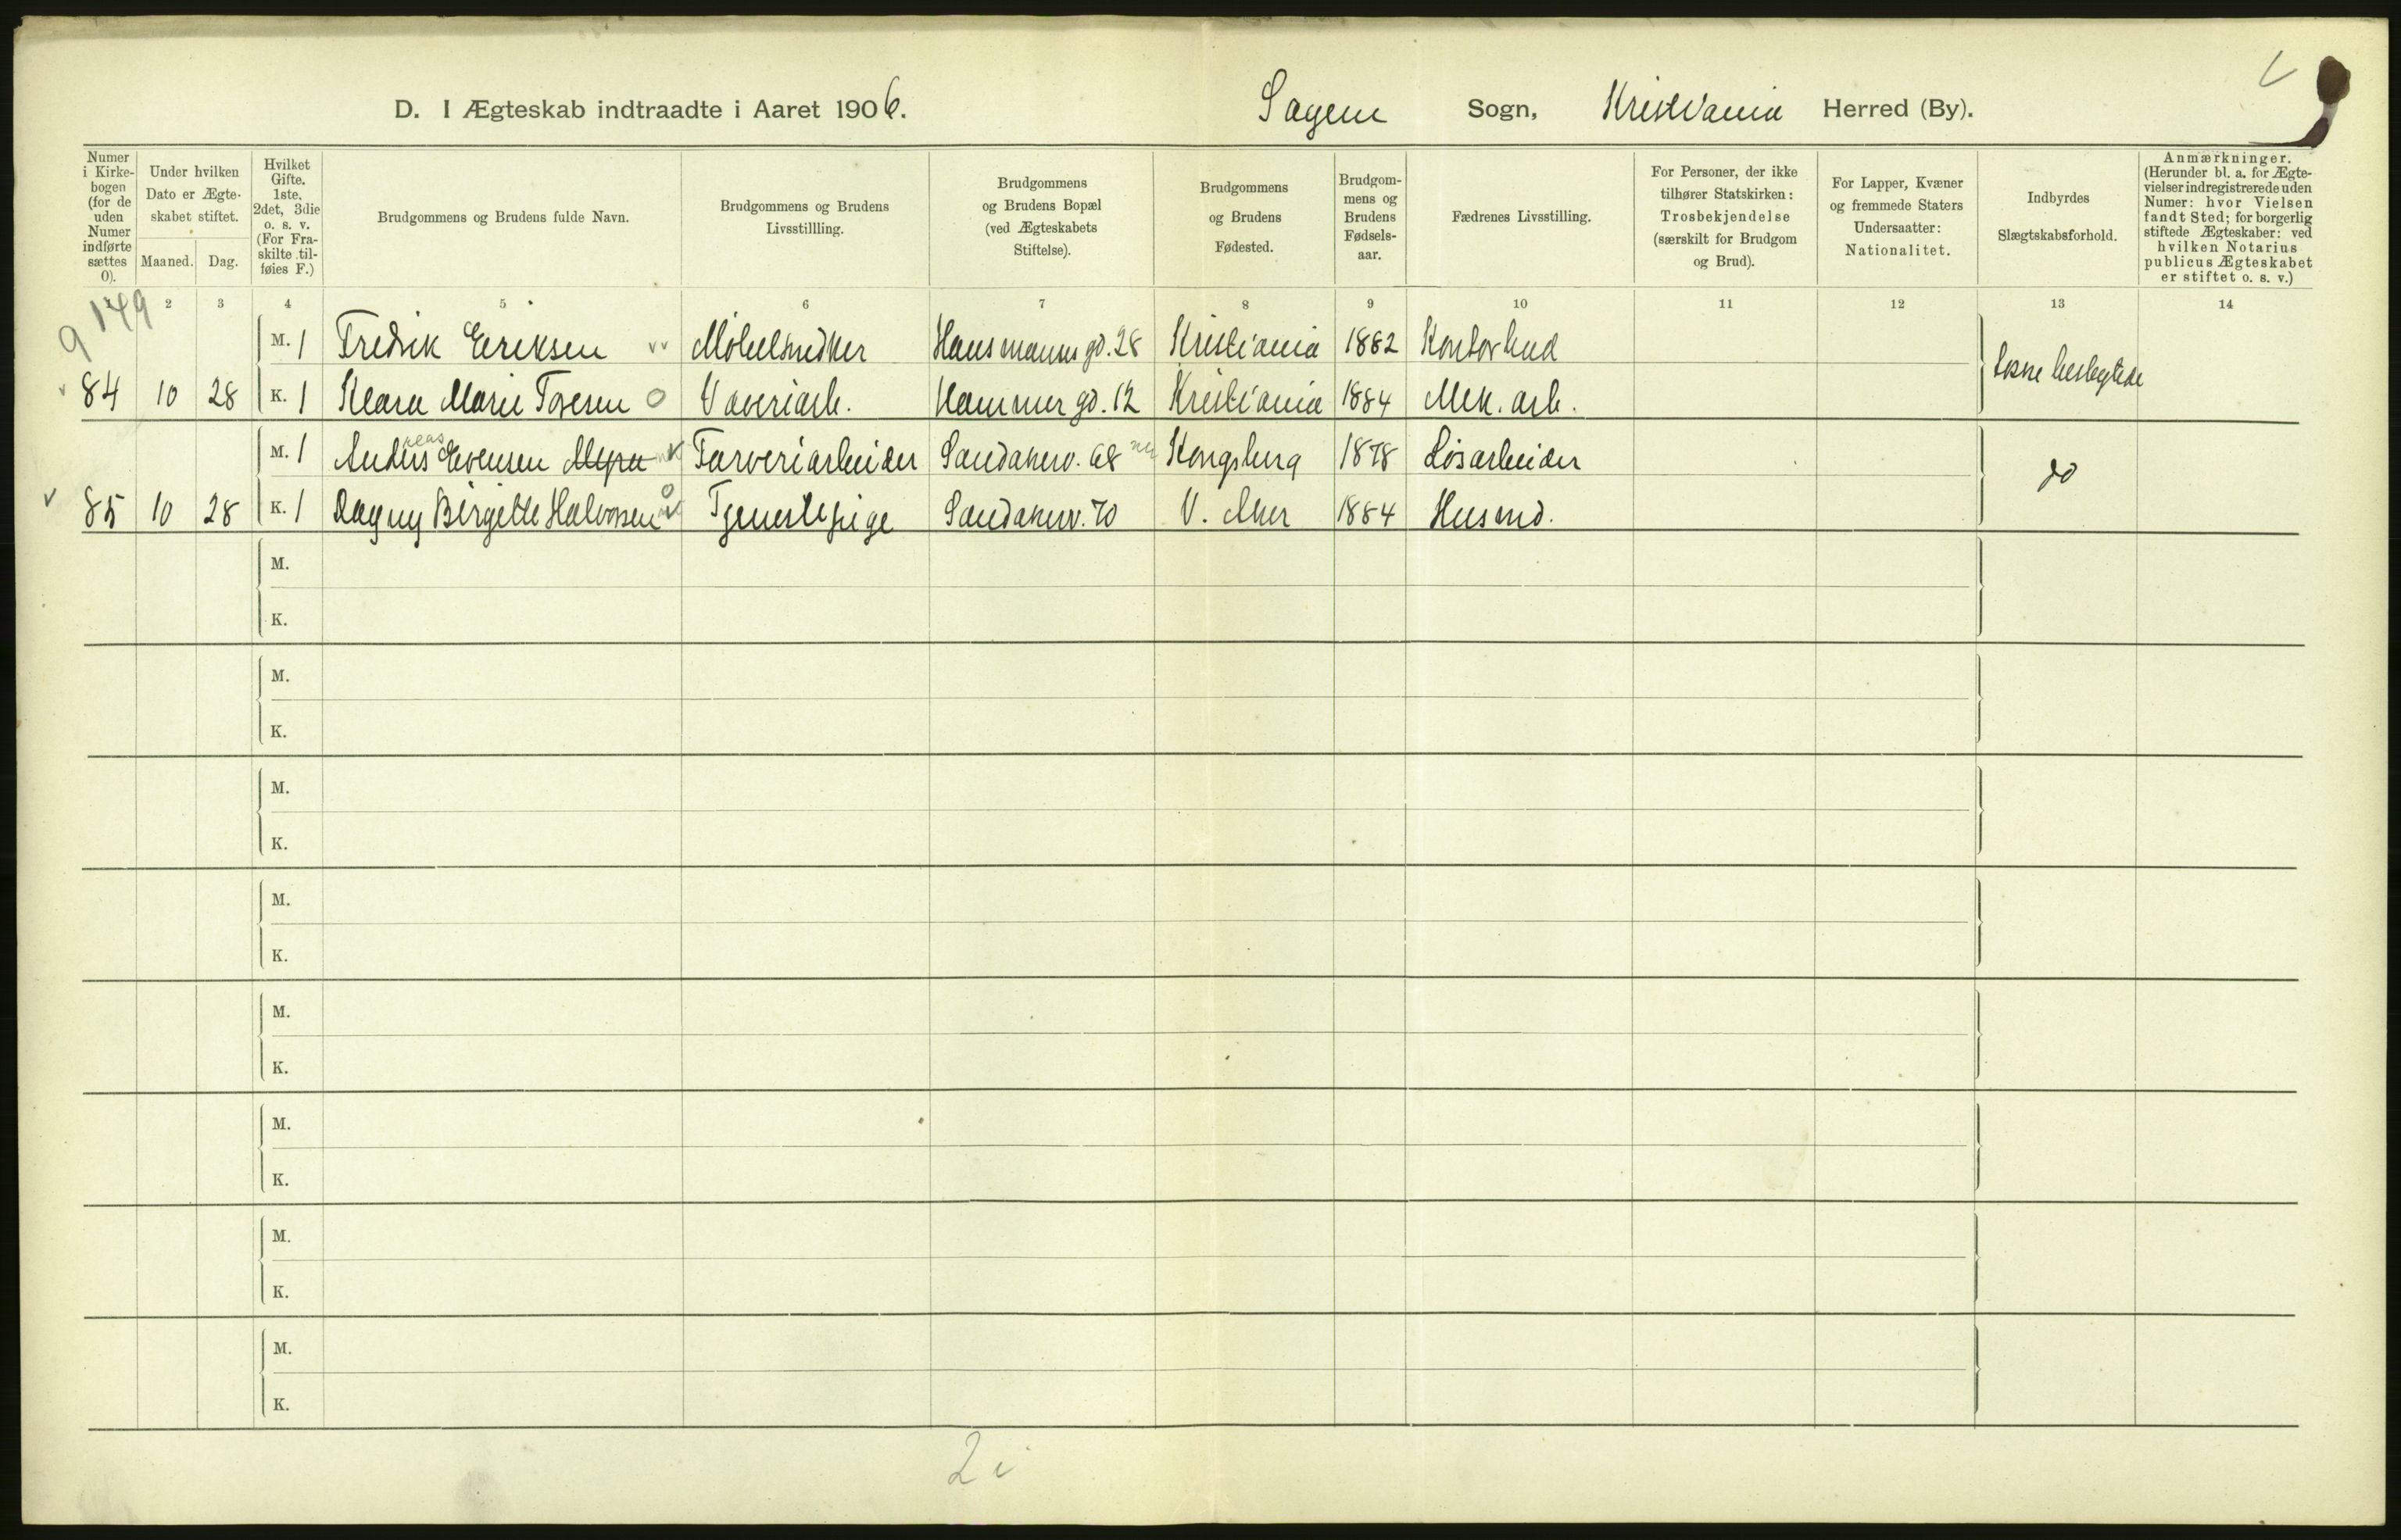 D. I Ægteskab indtraadte i Aaret 1906. Sagene Sogn, Kristiania Herred (By).
Numer i Kirkebogen (for de uden Numer indførte sættes 0).
Under hvilken Dato er Ægteskabet stiftet.
Maaned. Dag.
Hvilket Gifte. 1ste, 2det, 3die o. s. v. (For Fraskilte tilføies F.)
Brudgommens og Brudens fulde Navn.
Brudgommens og Brudens Livsstillling.
Brudgommens og Brudens Bopæl (ved Ægteskabets Stiftelse).
Brudgommens og Brudens Fødested.
Brudgommens og Brudens Fødselsaar.
Fædrenes Livsstilling.
For Personer, der ikke tilhører Statskirken: Trosbekjendelse (særskilt for Brudgom og Brud).
For Lapper, Kvæner og fremmede Staters Undersaatter: Nationalitet.
Indbyrdes Slægtskabsforhold.
Anmærkninger. (Herunder bl. a. for Ægtevielser indregistrerede uden Numer: hvor Vielsen fandt Sted; for borgerlig stiftede Ægteskaber: ved hvilken Notarius publicus Ægteskabet er stiftet o. s. v.)
2 3 4 5 6 7 8 9 10 11 12 13 14
9 149
M. 1 Fredrik Eriksen Møbelsnedker Hausmanns gd. 28 Kristiania 1882 Kontorbud
84 10 28 K. 1 Klara Marie Toresen Væveriarb. Hammer gd. 12 Kristiania 1884 Mek. arb. beslegtede
M. 1 Anders Evensen Myra Farveriarbeider Sandakerv. 68 Kongsberg 1878 Løsarbeider
85 10 28 K. 1 Dagny Birgitte Halvorsen Tjenestepige Sandakerv. 70 V. Aker 1884 Husmd. do
M.
K.
M.
K.
M.
K.
M.
K.
M.
K.
M.
K.
M.
K.
M.
K.
2